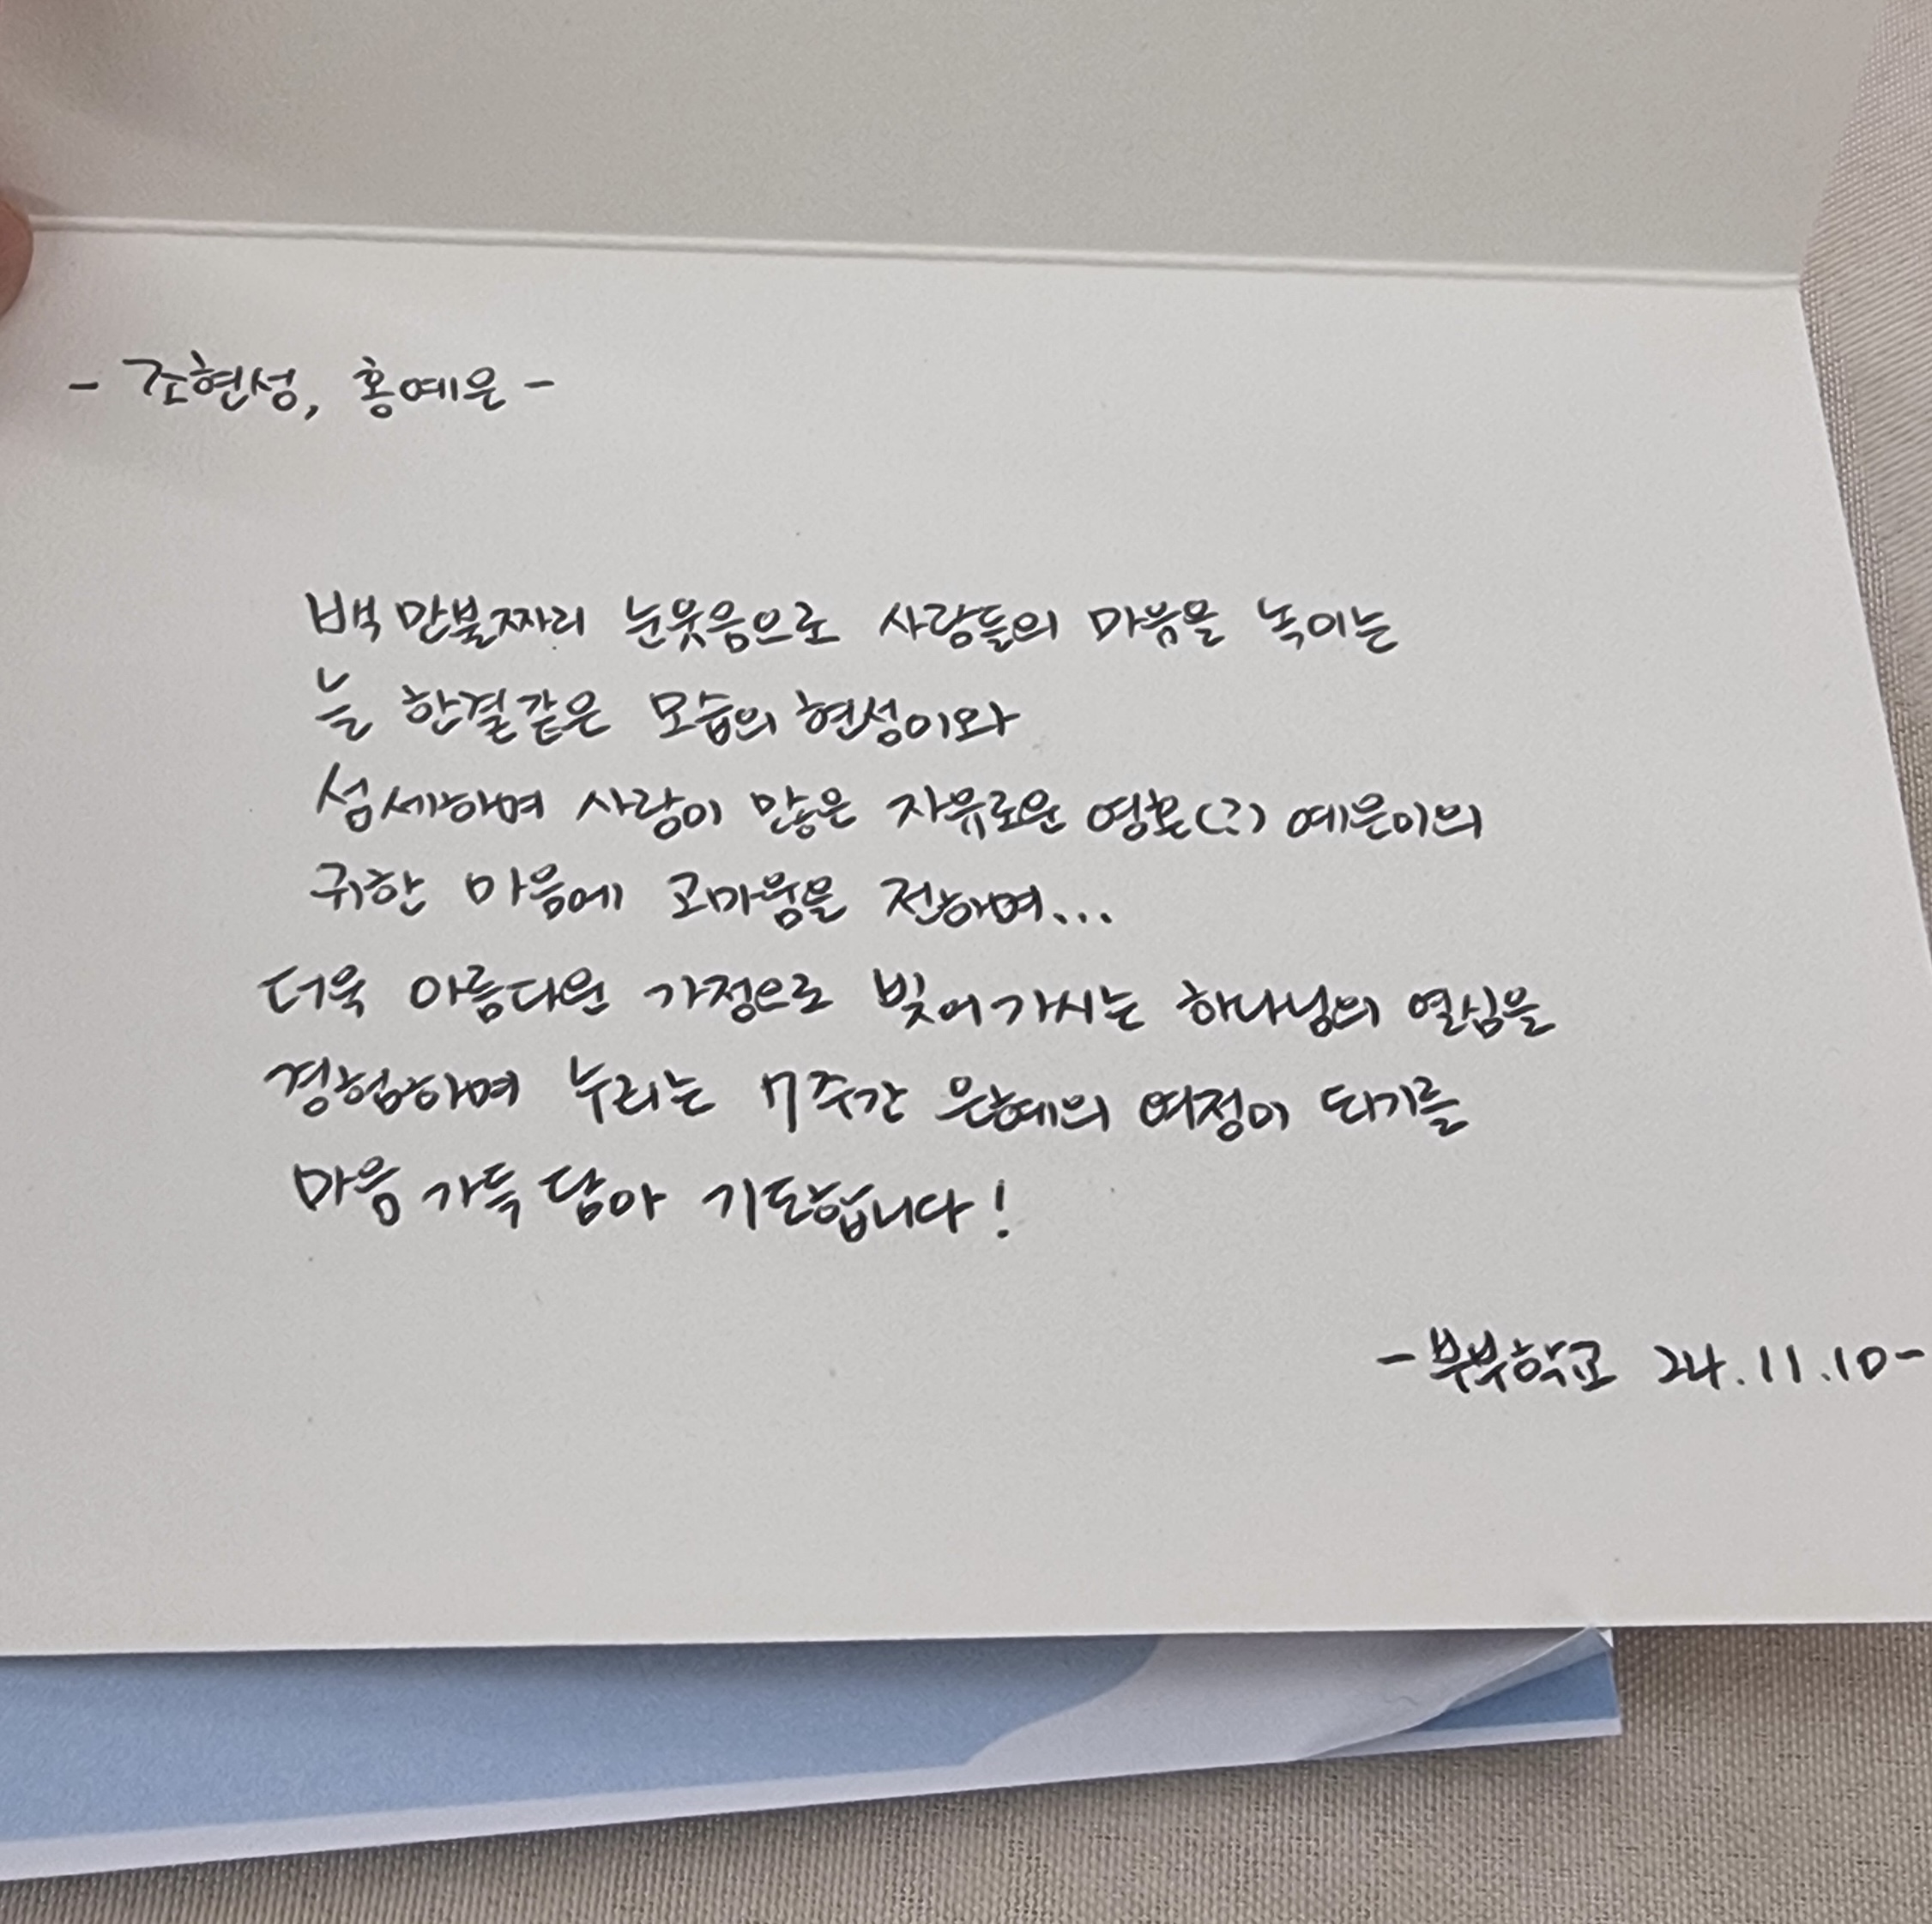 - 조현성, 홍예은 -
백만불짜리 눈웃음으로 사람들의 마음을 녹이는
늘 한결같은 모습의 현성이와
섬세하며 사랑이 많은 자유로운 영혼(?) 예은이의
귀한 마음에 고마움을 전하며...
더욱 아름다운 가정으로 빚어가시는 하나님의 열심을
경험하며 누리는 7주간 은혜의 여정이 되기를
마음 가득 담아 기도합니다!
- 부부학교 24.11.10 -